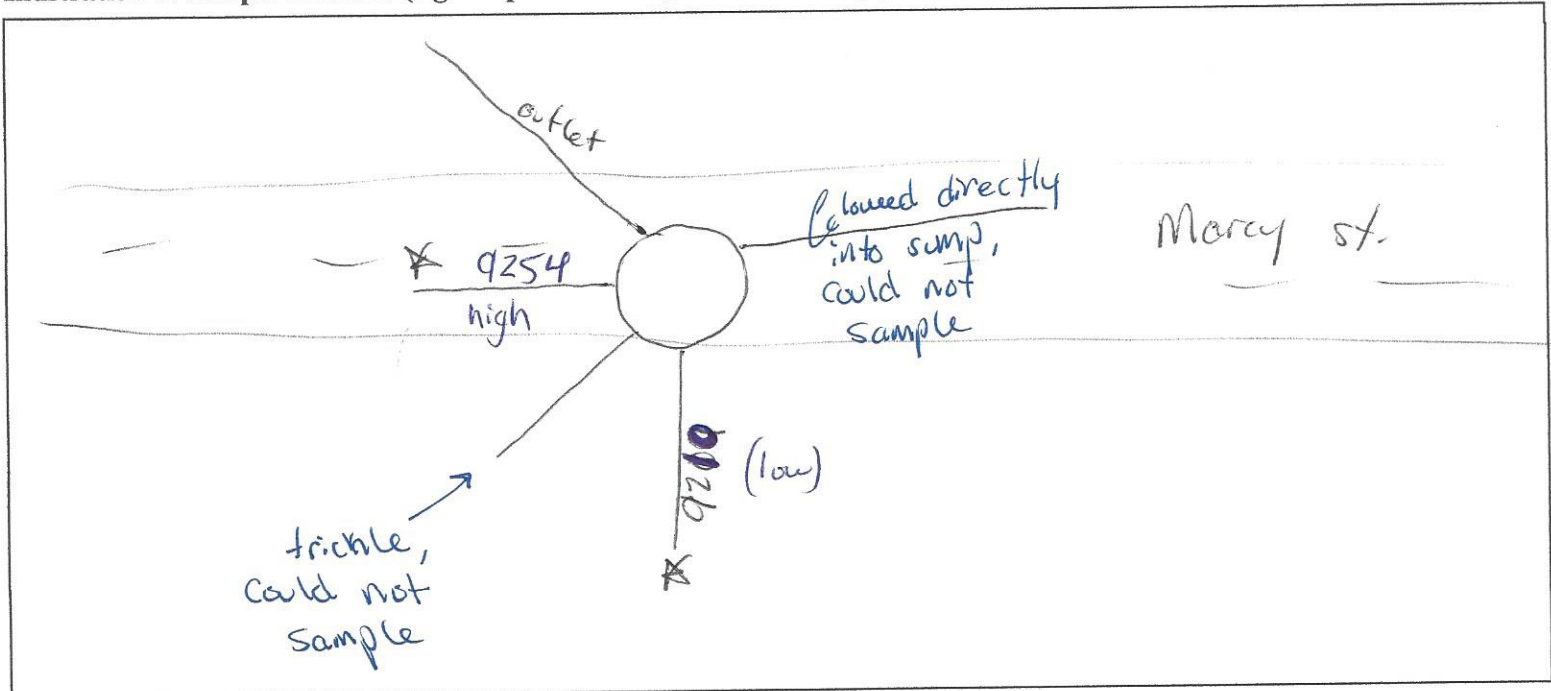 outlet
flowed directly
into sump,
could not
sample
Marcy st.
9254
high
92
(low)
trickle,
Could not
Sample